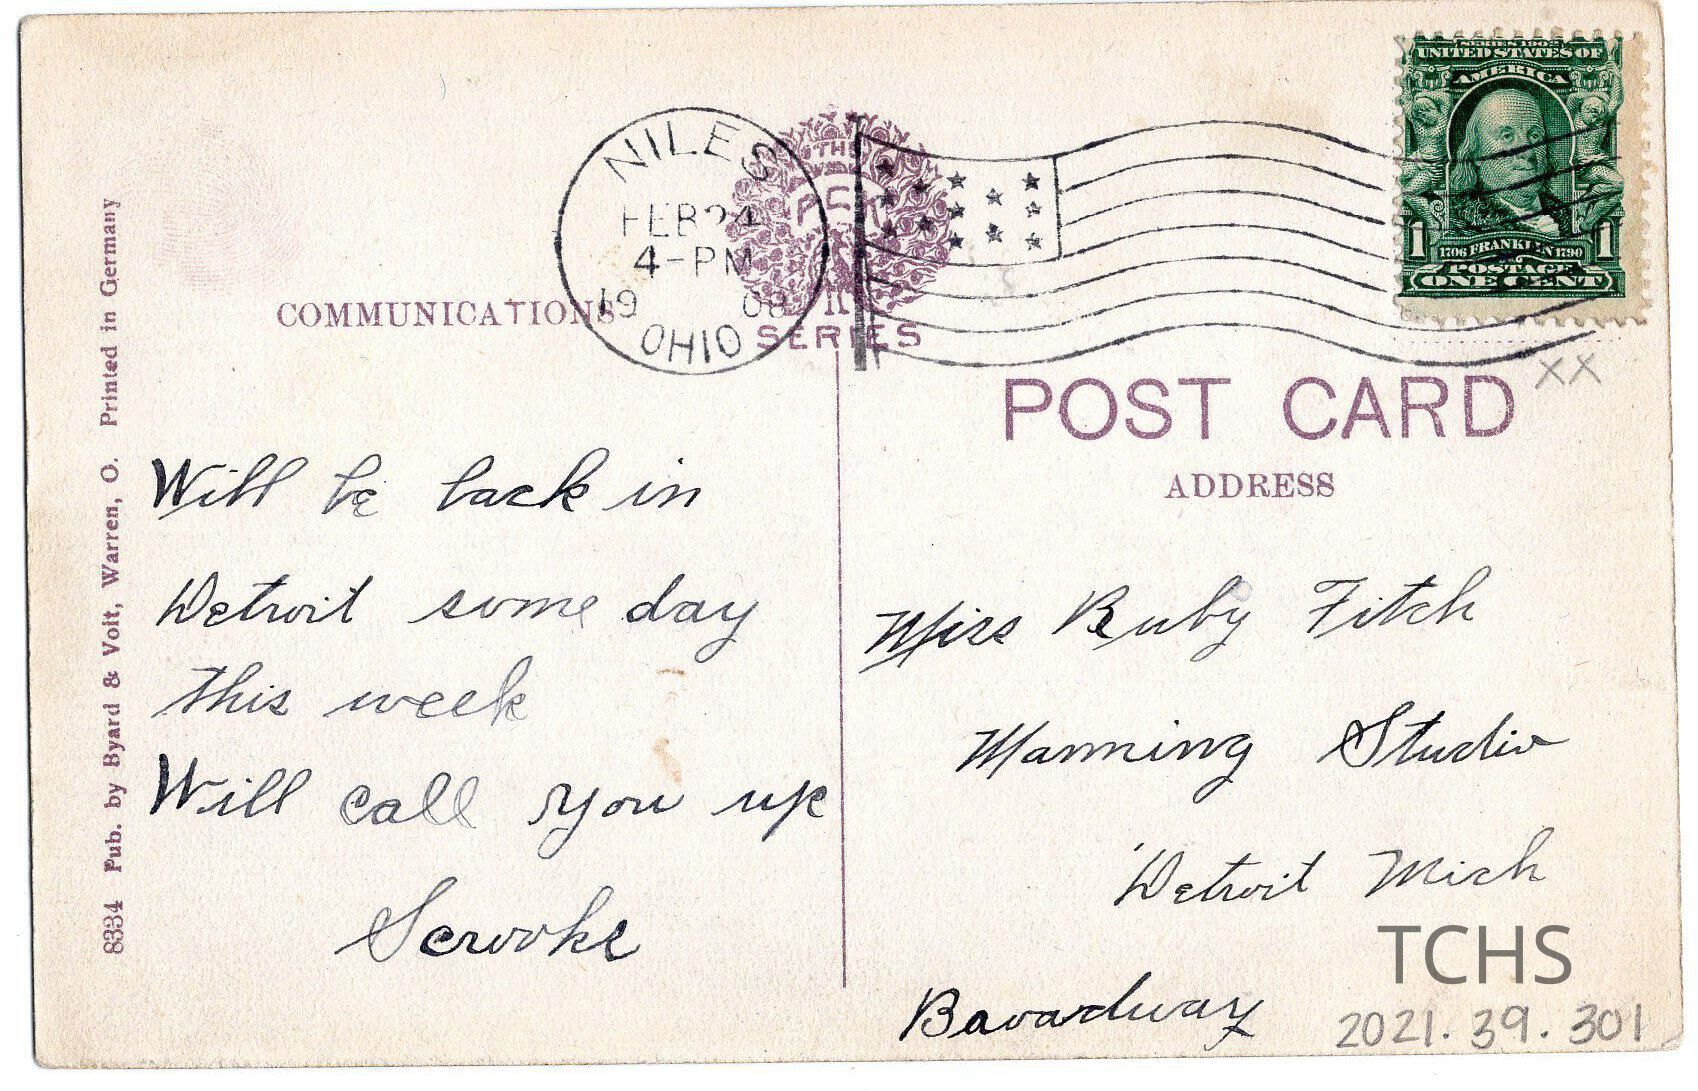 NILES
FEB 24
4-PM
1908
OHIO
THE
PCK
SERIES
SERIES 1902
UNITED STATES OF
AMERICA
1706 FRANKLIN 1790
1 1
POSTAGE
ONE CENT
XX
COMMUNICATIONS
POST CARD
ADDRESS
8334 Pub. by Byard & Voit, Warren, O. Printed in Germany
Will be back in
Detroit some day
this week
Will call you up
Scrooke
Miss Ruby Fitch
Manning Studio
Detroit Mich
Bavardway
TCHS
2021.39.301